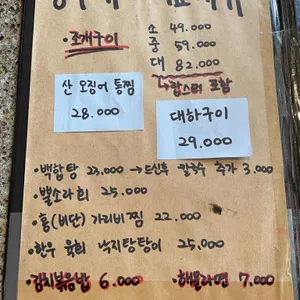 소 49.000
· 조개구이 중 59.000
대 82.000
↳ 랍스터 포함
산 오징어 통찜
28.000
대하구이
29.000
· 백합탕 23.000 → 드신후 칼국수 추가 3.000
· 뿔소라회 25.000
· 홍(비단) 가리비찜 22.000
· 한우 육회 낙지탕탕이 25.000
· 김치볶음밥 6.000 · 해물라면 7.000